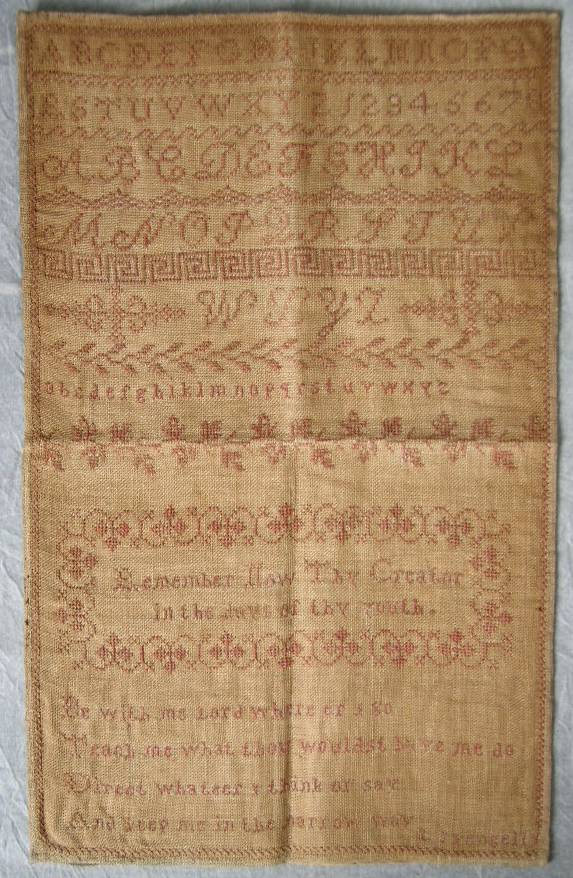 A B C D E F G H I J K L M N O P Q
R S T U V W X Y Z 1 2 3 4 5 6 7 8
A B C D E F G H I J K L
M N O P Q R S T U V
W X Y Z
a b c d e f g h i k l m n o p q r s t u v w x y z
Remember Now Thy Creator
in the days of thy youth.
Be with me Lord where er I go
Teach me what thou wouldst have me do
Direct whateer I think or say
And keep me in the narrow way